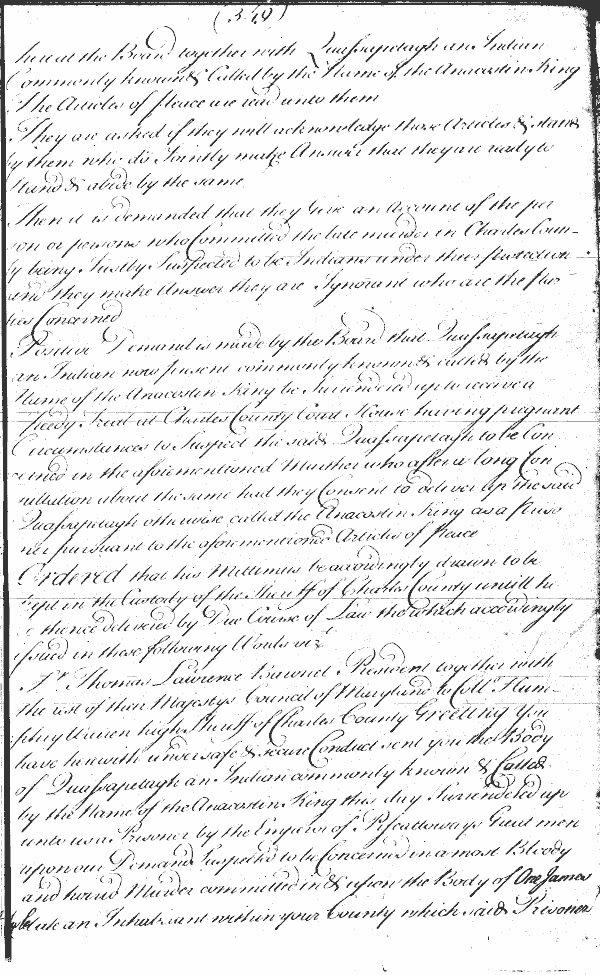 (349)
here at the Board together with Quassapelagh an Indian
Commonly known & Called by the Name of the Anacostin King
The Articles of Peace are read unto them
They are asked if they will acknowledge those Articles & stand
by them who do Jointly make Answer that they are ready to
Stand & abide by the same
Then it is demanded that they Give an Account of the per
son or persons who Committed the late murder in Charles Coun-
ty being Justly Suspected to be Indians under their protection
and they make Answer they are Ignorant who are the par
ties Concerned
Positive Demand is made by the Board that Quassapelagh
an Indian now present commonly known & called by the
Name of the Anacostin King be Surrendred up to receive a
speedy Tryal at Charles County Court House having pregnant
Circumstances to Suspect the said Quassapelagh to be Con
cerned in the aforementioned Murther who after a long Con
sultation about the same had they Consent to deliver up the said
Quassapelagh otherwise called the Anacostin King as a Priso
ner pursuant to the aforementioned Articles of Peace
Ordered that his Mittimus be accordingly drawn to be
kept in the Custody of the Sheriff of Charles County untill he
be thence delivered by Due Course of Law the which accordingly
issued in these following Words vizt
Sr Thomas Lawrence Baronet President together with
the rest of their Majestys Council of Maryland to Coll Hum-
phry Warren high Sheriff of Charles County Greeting You
have herewith under safe & secure Conduct sent you the Body
of Quassapelagh an Indian commonly known & Called
by the Name of the Anacostin King this day Surrendered up
unto us a Prisoner by the Emperor of Piscattoways Great men
upon our Demand Suspected to be Concerned in a most Bloody
and horrid Murder committed in & upon the Body of One James
late an Inhabitant within your County which said Prisoner